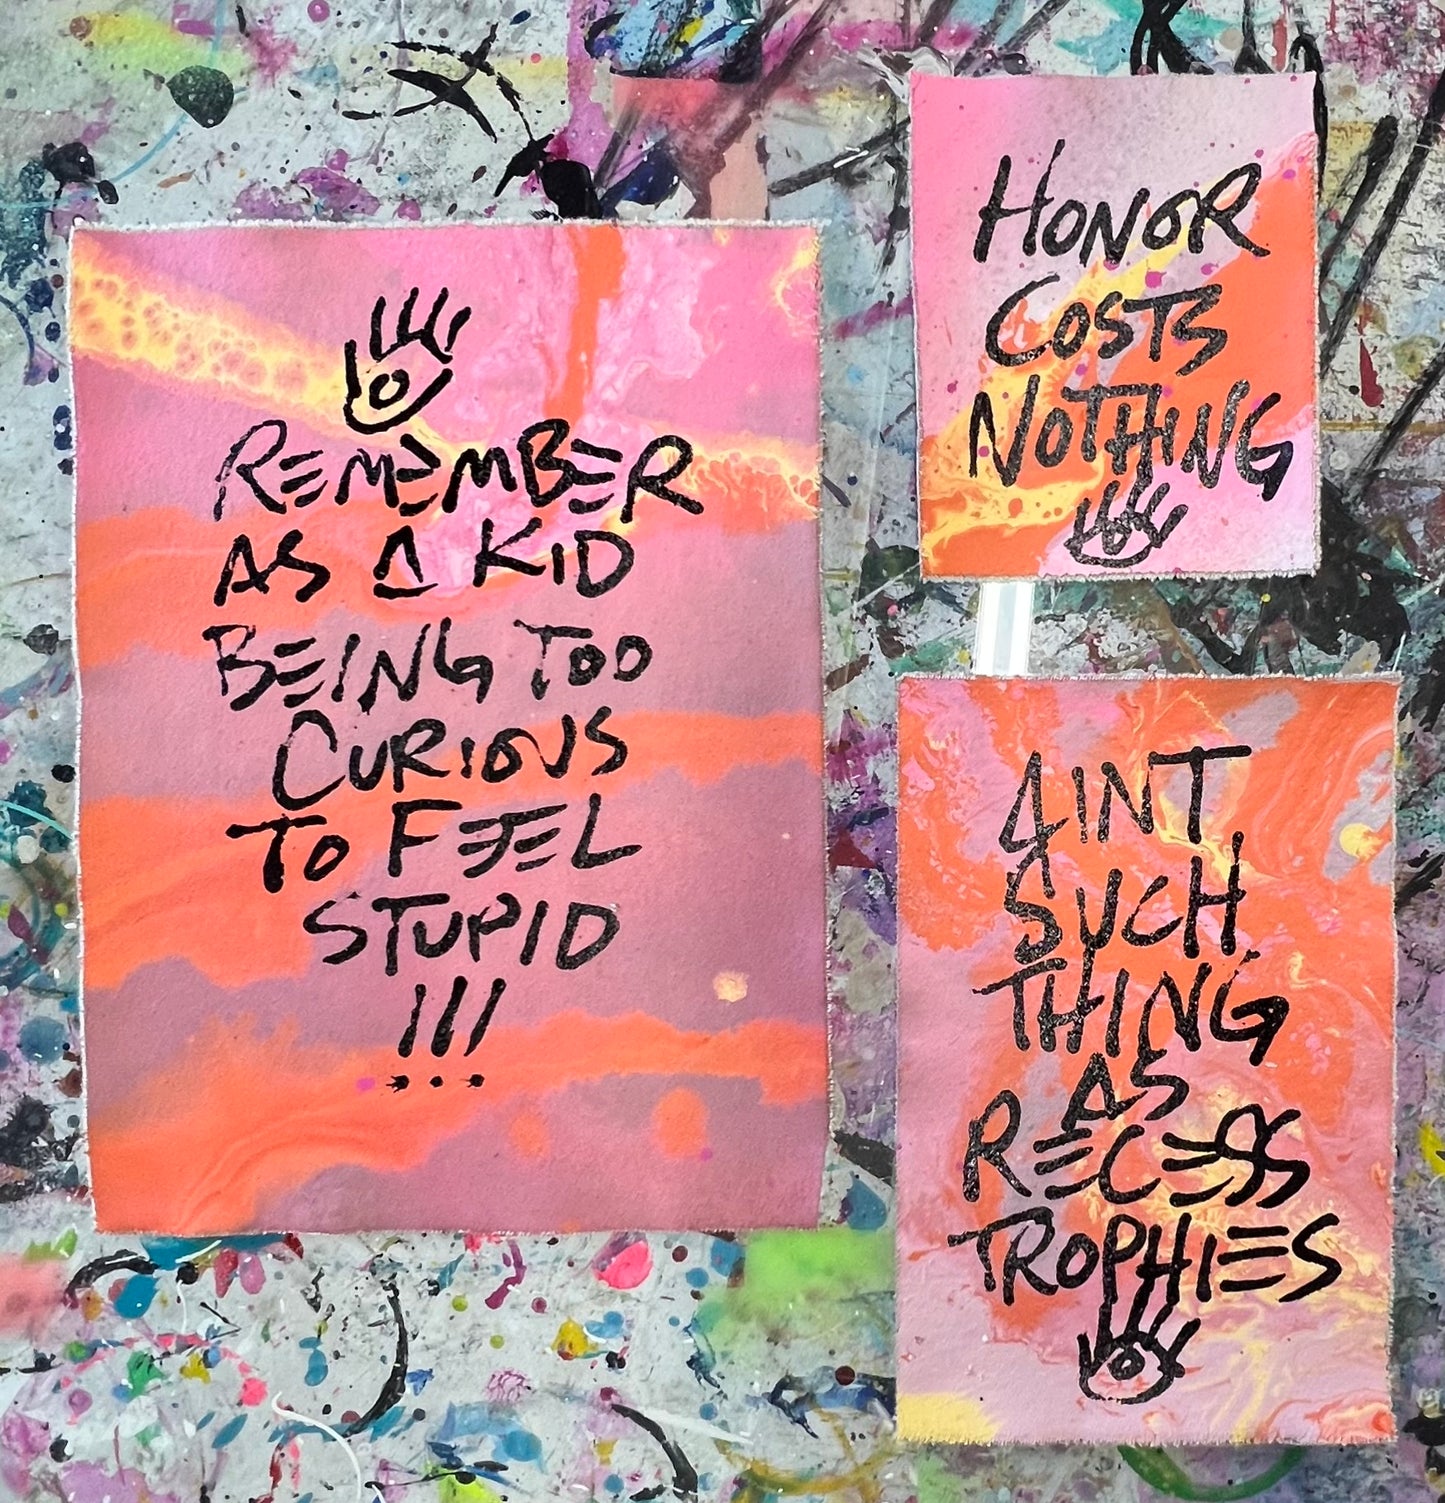 REMEMBER
AS A KID
BEING TOO
CURIOUS
TO FEEL
STUPID
!!!
HONOR
COSTS
NOTHING
AINT
SUCH
THING
AS
RECESS
TROPHIES